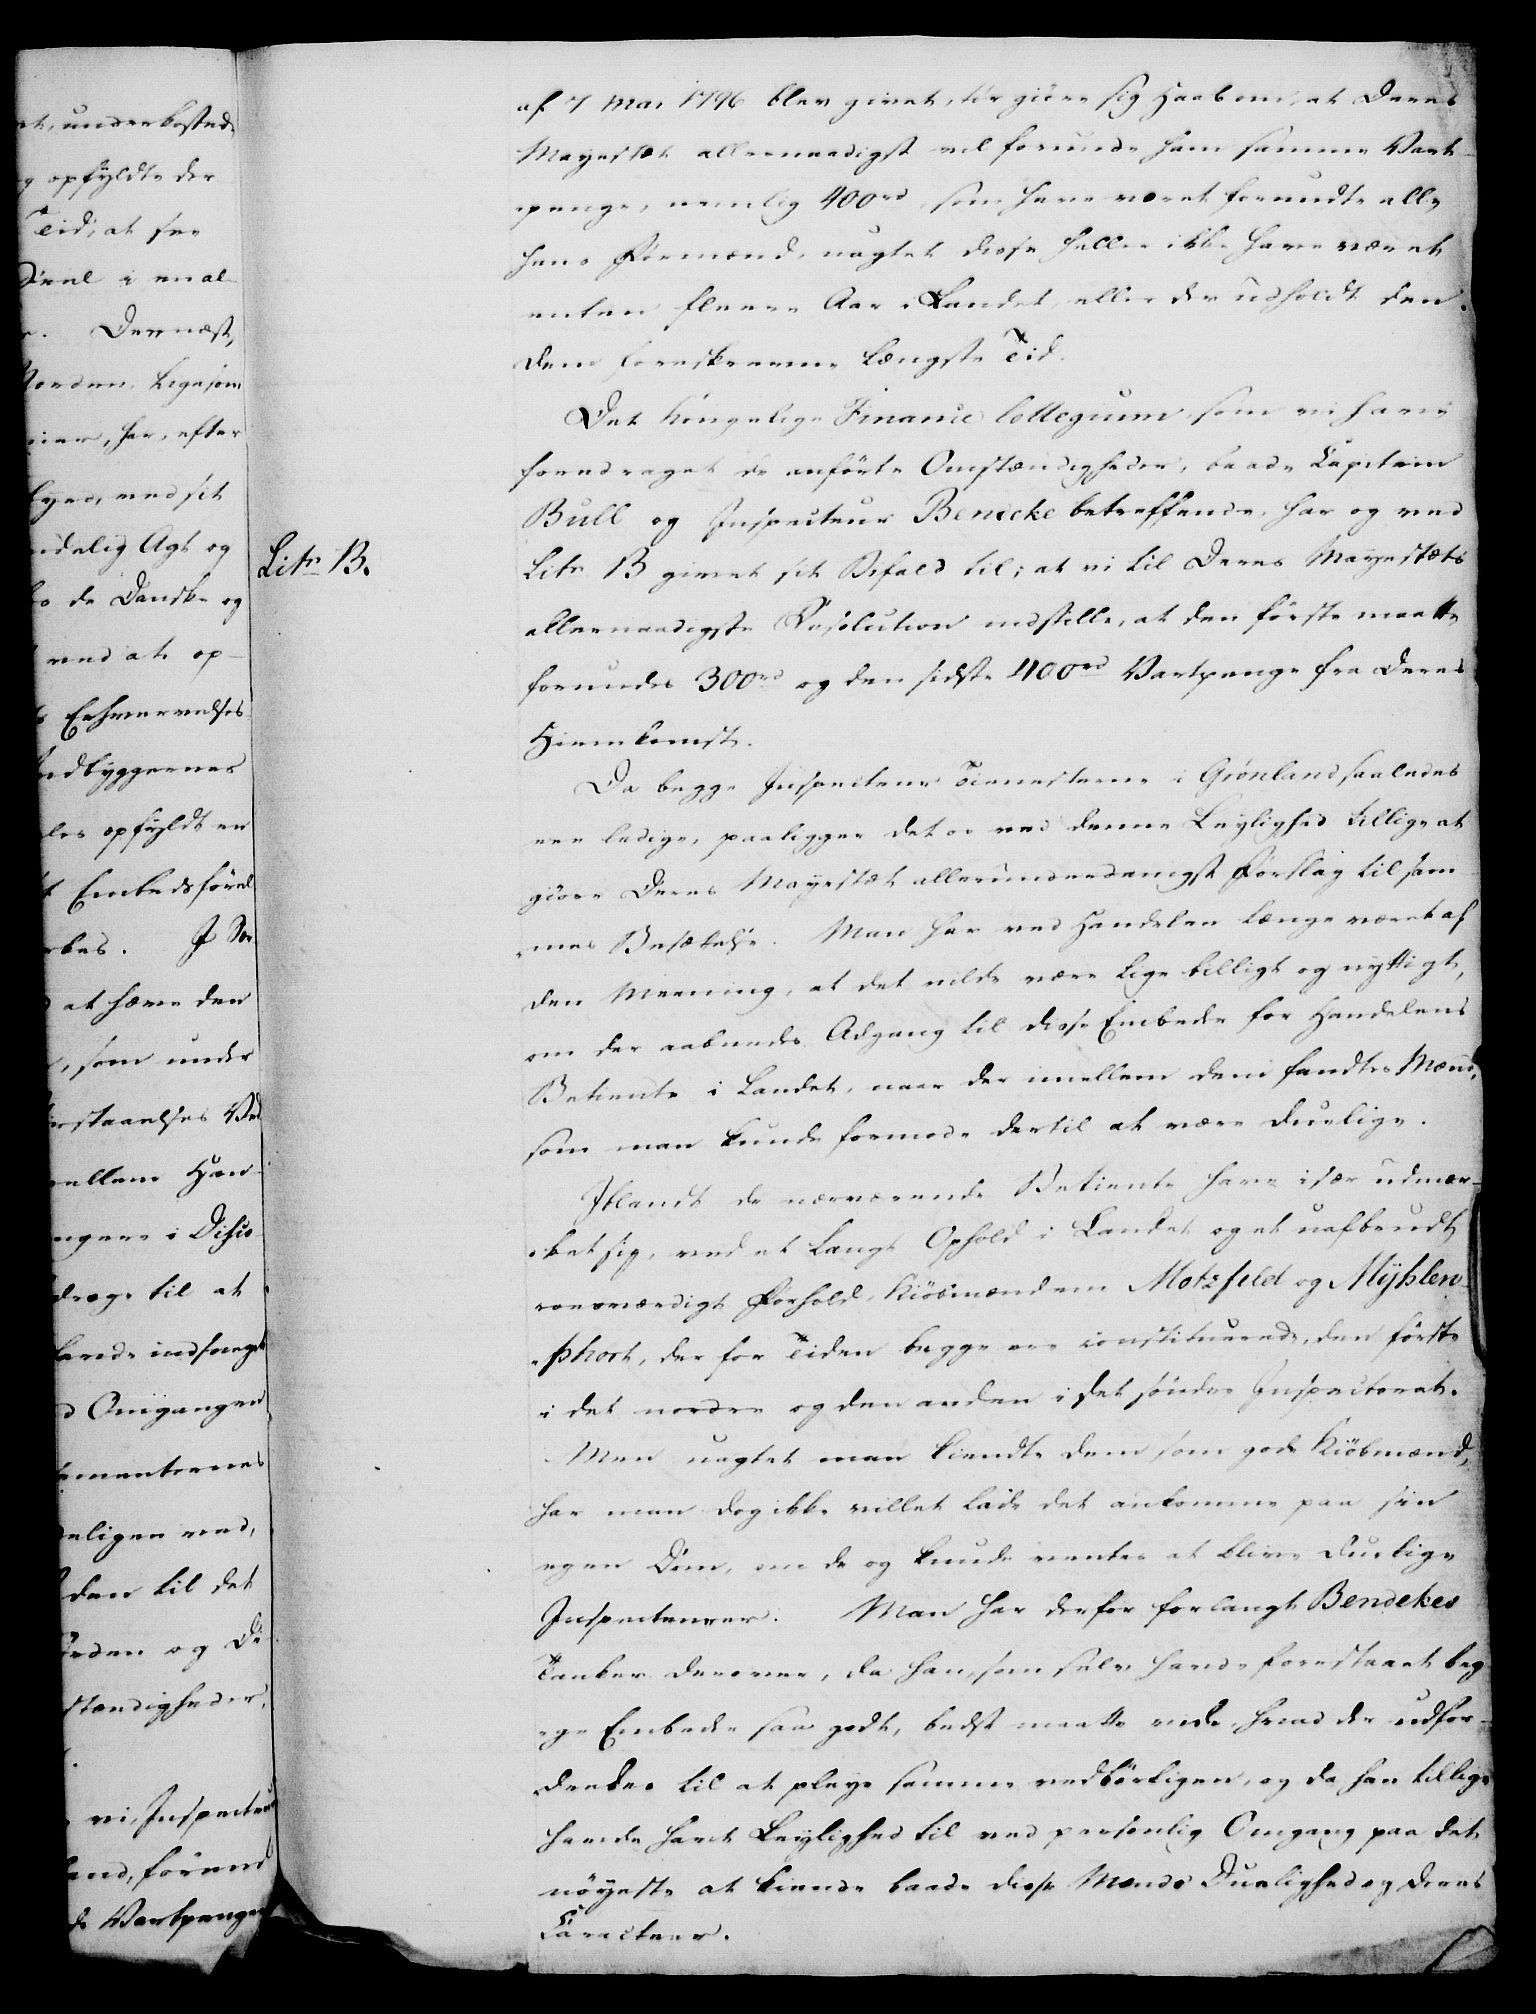 et, underkastede
g opfyldte der
Tid, at see
Deel i en al-
r. Dernæst,
Norden. Ligesom
ier, har, efter
byes, ved sit
ndelig Agt og
os de Danske og
ved at op-
s Erhvervelses
Indbyggernes
les opfyldt en
t Embedsförel
rkes. I Sær-
d at hæve den
, som under
erstaaelses Ved
mellem Han-
ngere i Disko
drage til at
lands indsneget
d Omgangen
ementernes
deligen ved,
den til det
Orden og Di-
stændigheder,
vi, Inspecteur
land, forend
de Vartpenge
Litr B.
af 7 Mai 1796 blev givet, tör giöre sig Haab om, at Deres
Mayestæt allernaadigst vil forunde ham samme Vart-
penge, nemlig 400rd, som have været forundte alle
hans Formænd, uagtet disse heller ikke have været
enten fleere Aar i Landet, eller der udholdt den
dem foreskrevne længste Tid.
Det Kongelige Finance Collegium, som vi have
foredraget de anförte Omstændigheder, baade Capitain
Bull og Inspecteur Bendeke betreffende, har og ved
Litr B givet sit Bifald til; at vi til Deres Mayestæts
allernaadigste Resolution indstille, at den förste maatte
forundes 300rd og den sidste 400rd Vartpenge fra Deres
Hiemkomst.
Da begge Inspecteur Tienesterne i Grønland saaledes
ere ledige, paaligger det os ved denne Leylighed tillige at
giöre Deres Mayestæt allerunderdanigst Forslag til sam-
mes Besættelse. Man har ved Handelen længe været af
den Meening, at det vilde være lige billigt og nyttigt,
om der aabnedes Adgang til disse Embeder for Handelens
Betiente i Landet, naar der imellem dem fandtes Mænd,
som man kunde formode dertil at være duelige.
Iblandt de nærværende Betiente have især udmær-
ket sig, ved et langt Ophold i Landet og et uafbrudt
roesværdigt Forhold, Kiöbmændene Motzfeld og Myhlen-
phort, der for Tiden begge ere constituerede, den förste
i det nordre og den anden i det söndre Inspectorat.
Men uagtet man kiendte dem som gode Kiöbmænd,
har man dog ikke villet lade det ankomme paa sin
egen Dom, om de og kunde ventes at blive duelige
Inspecteurer. Man har derfor forlangt Bendekes
Tanker derover, da han, som selv havde forestaaet beg-
ge Embeder saa godt, bedst maatte vide, hvad der udfor-
dredes til at pleye samme vedbörligen, og da han tillige
havde havt Leylighed til ved personlig Omgang paa det
nöyeste at kiende baade disse Mænds Duelighed og deres
Caracteer.